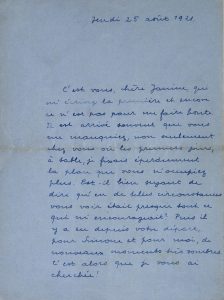 Jeudi 25 août 1921
C'est vous, chère Jeanne, qui
m'écrivez la première et encore
ce n'est pas pour me faire honte.
Il est arrivé souvent que vous
me manquiez, non seulement
chez vous où les premiers jours,
à table, je fixais éperdument
la place que vous n'occupiez
plus. Est-il bien séyant de
dire qu'en de telles circonstances
vous voir était presque tout ce
qui m'encourageait? Puis il
y a eu depuis votre départ,
pour Simone et pour moi, de
nouveaux moments très sombres
et c'est alors que je vous ai
cherchée!